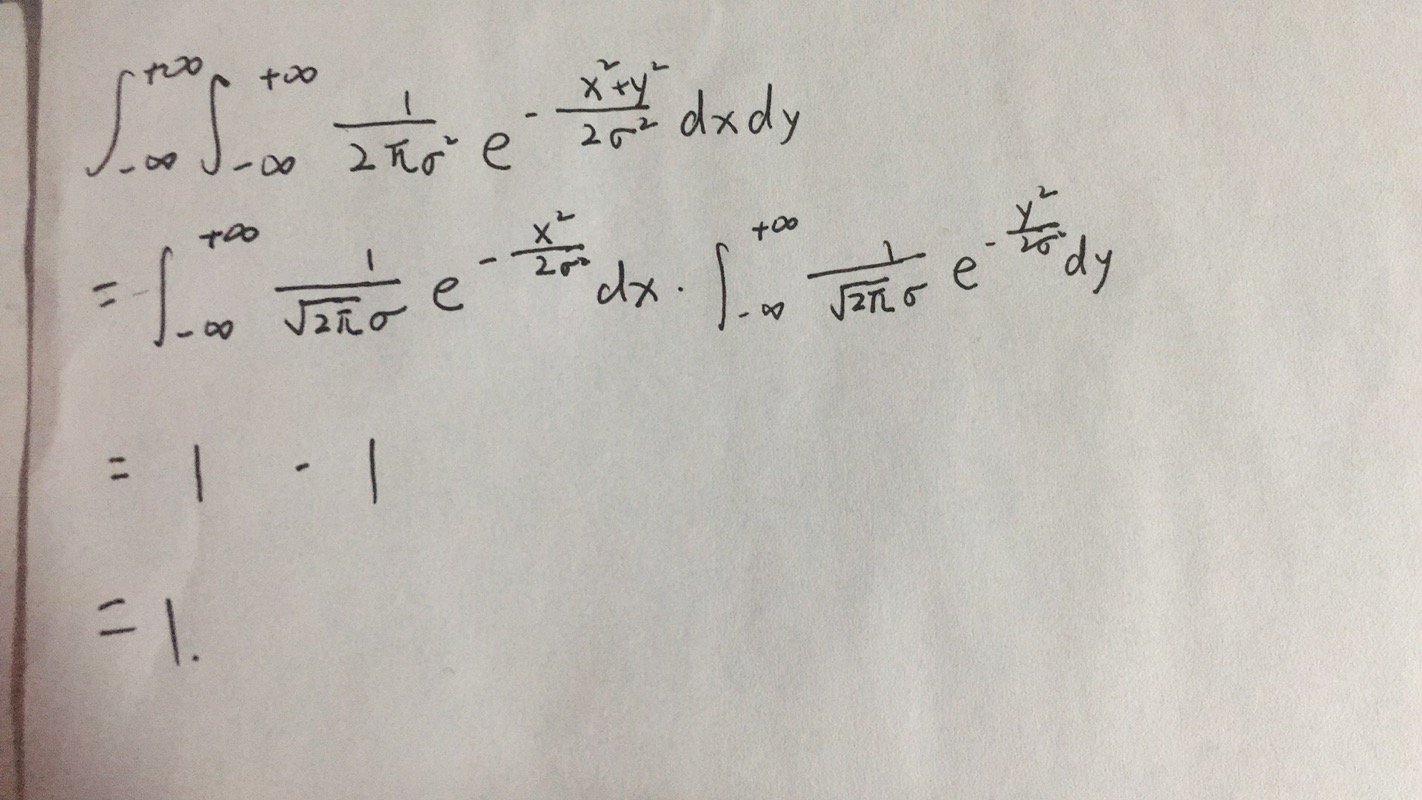 ∫_{-∞}^{+∞} ∫_{-∞}^{+∞} \frac{1}{2πσ^2} e^{-\frac{x^2+y^2}{2σ^2}} dxdy
= ∫_{-∞}^{+∞} \frac{1}{\sqrt{2π}σ} e^{-\frac{x^2}{2σ^2}} dx · ∫_{-∞}^{+∞} \frac{1}{\sqrt{2π}σ} e^{-\frac{y^2}{2σ^2}} dy
= 1 · 1
= 1.